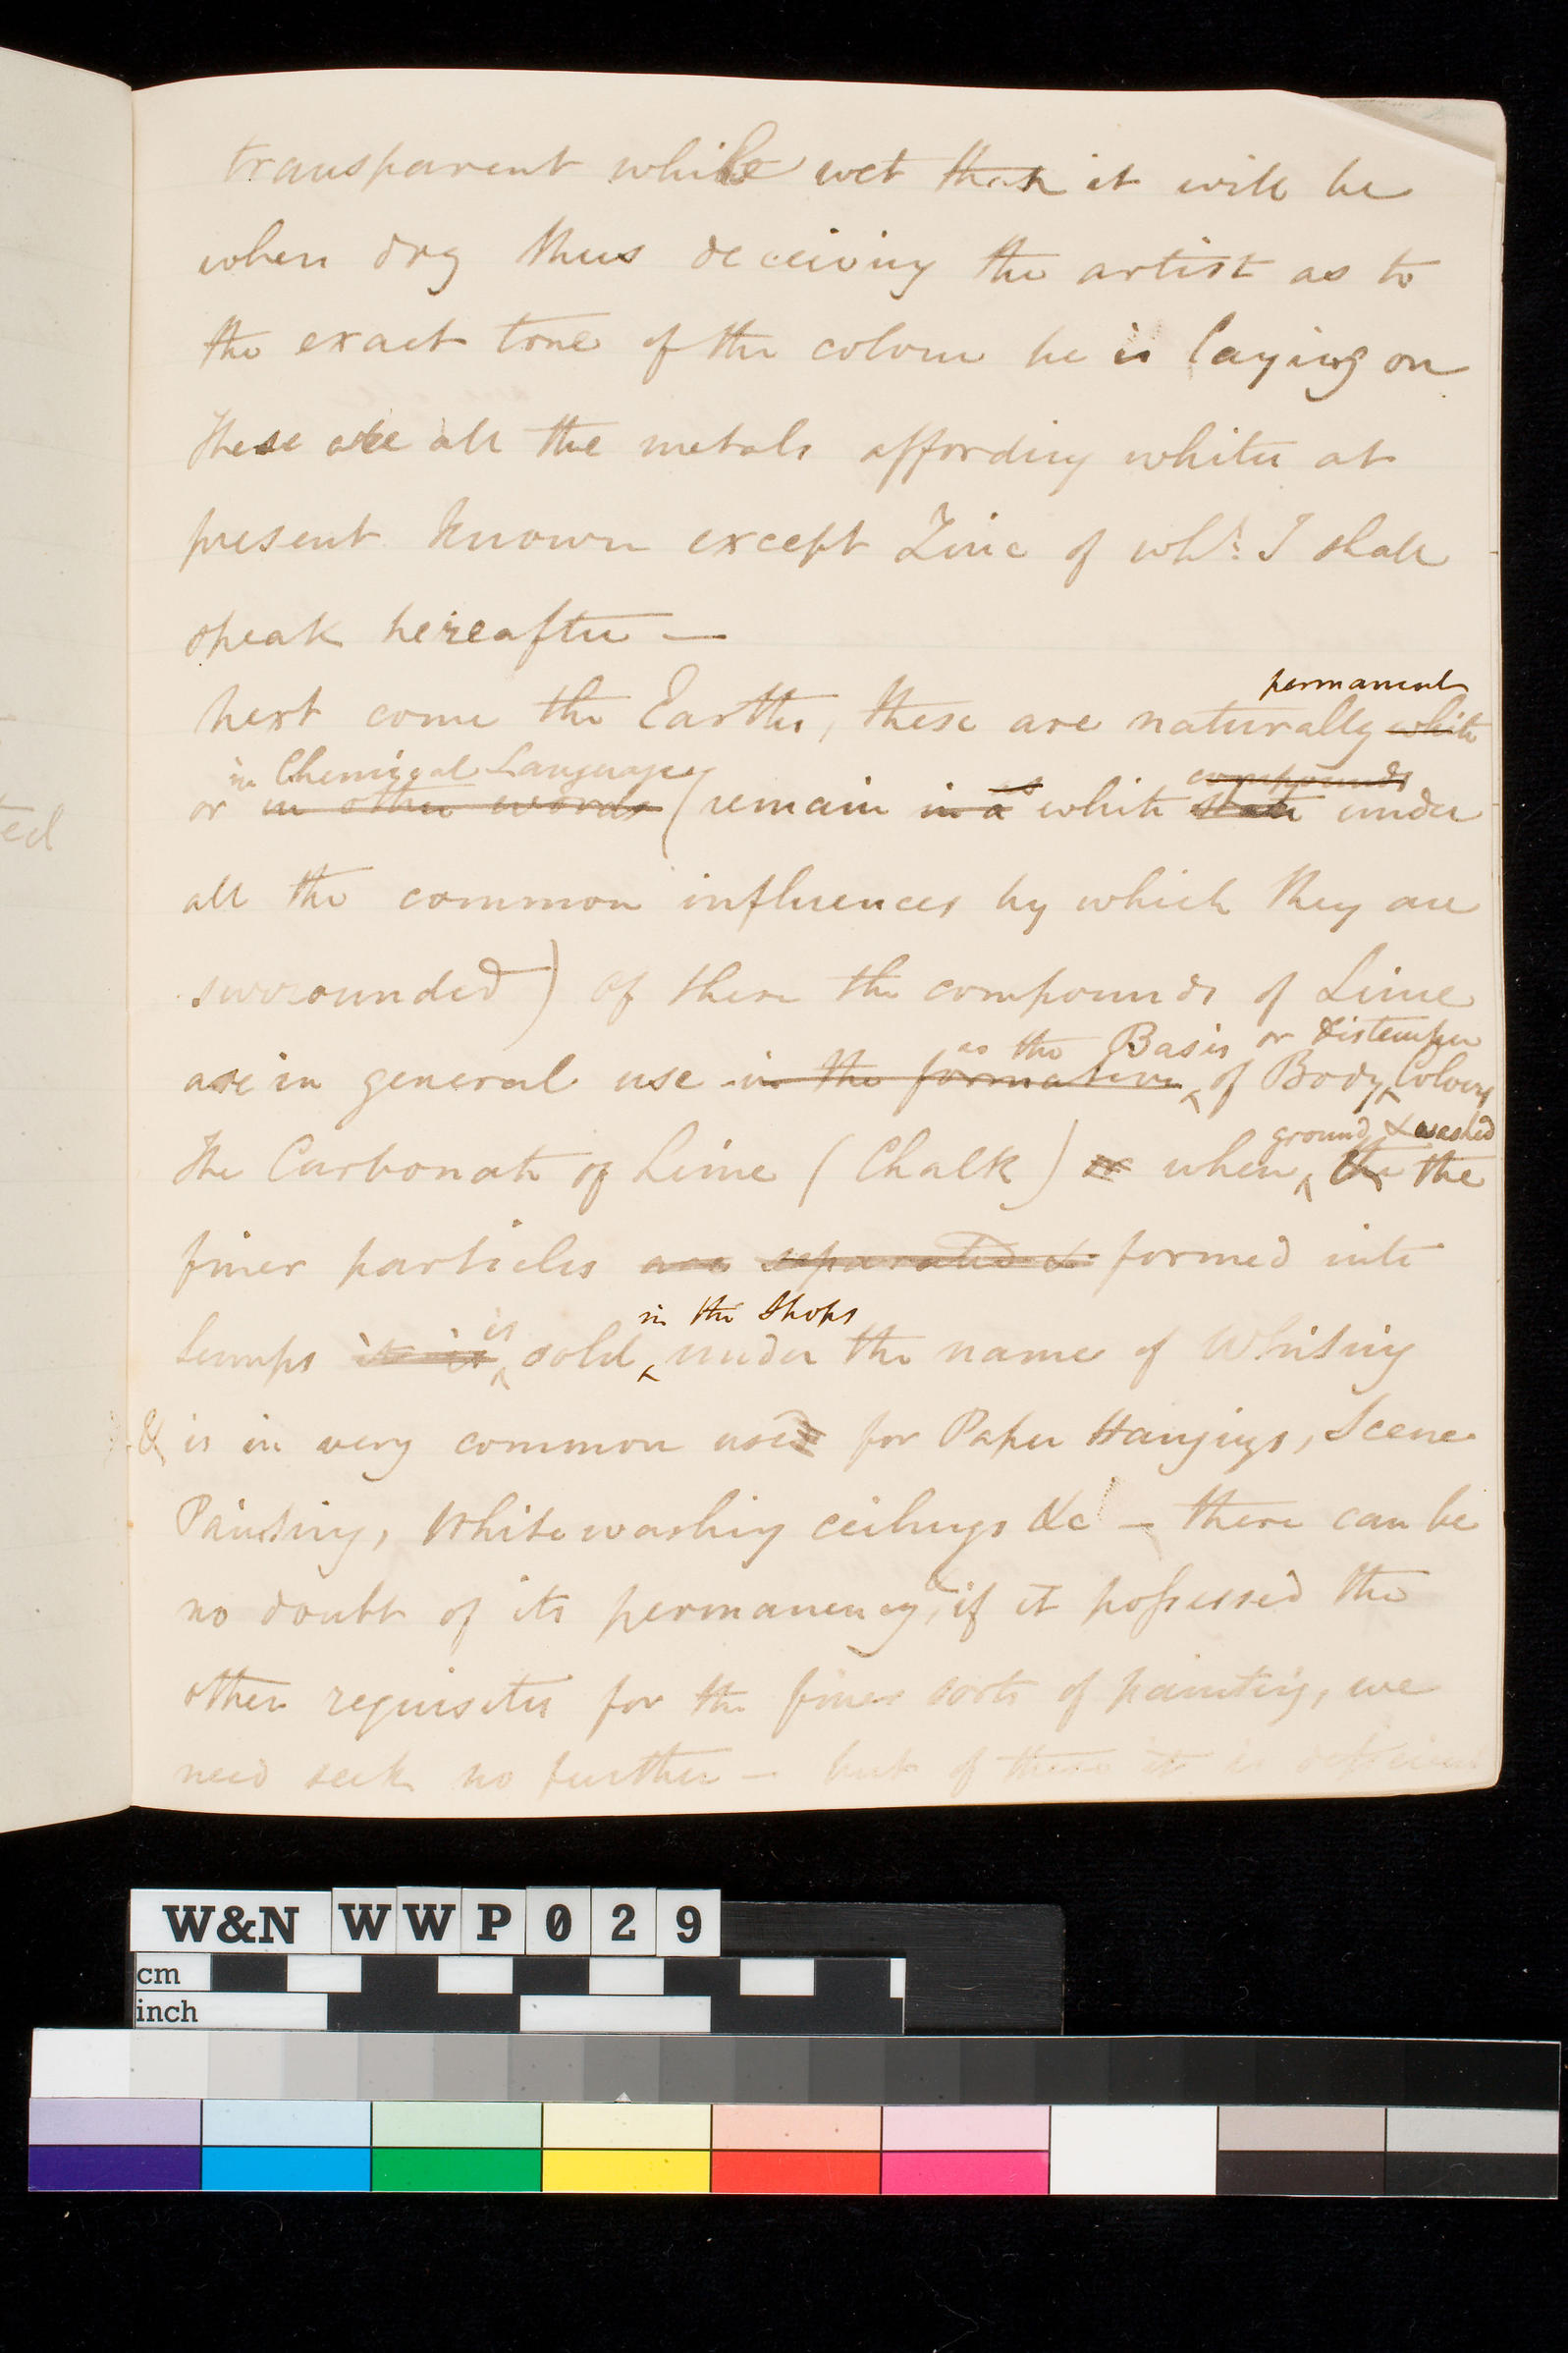 transparent while wet than it will be
when dry thus deceiving the artist as to
the exact tone of the colour he is laying on
These are all the metals affording whites at
present known except Zinc of wh^h: I shall
speak hereafter —
permanent
next come the Earths, these are naturally white
in Chemical Language as compounds
or in other words (remain in a white state under
all the common influences by which they are
surrounded) of these the compounds of Lime
as the Basis or distemper
are in general use in the formation of Body Colours
ground & washed
The Carbonate of Lime (Chalk) when the the
finer particles are separated & formed into
is in the Shops
lumps it is sold under the name of Whiting
& is in very common used for Paper Hangings, Scene
Painting, Whitewashing ceilings &c — there can be
no doubt of its permanency, if it possessed the
other requisites for the finer sorts of painting, we
need seek no further — but of these it is deficient
ted
W&N WWP029
cm
inch